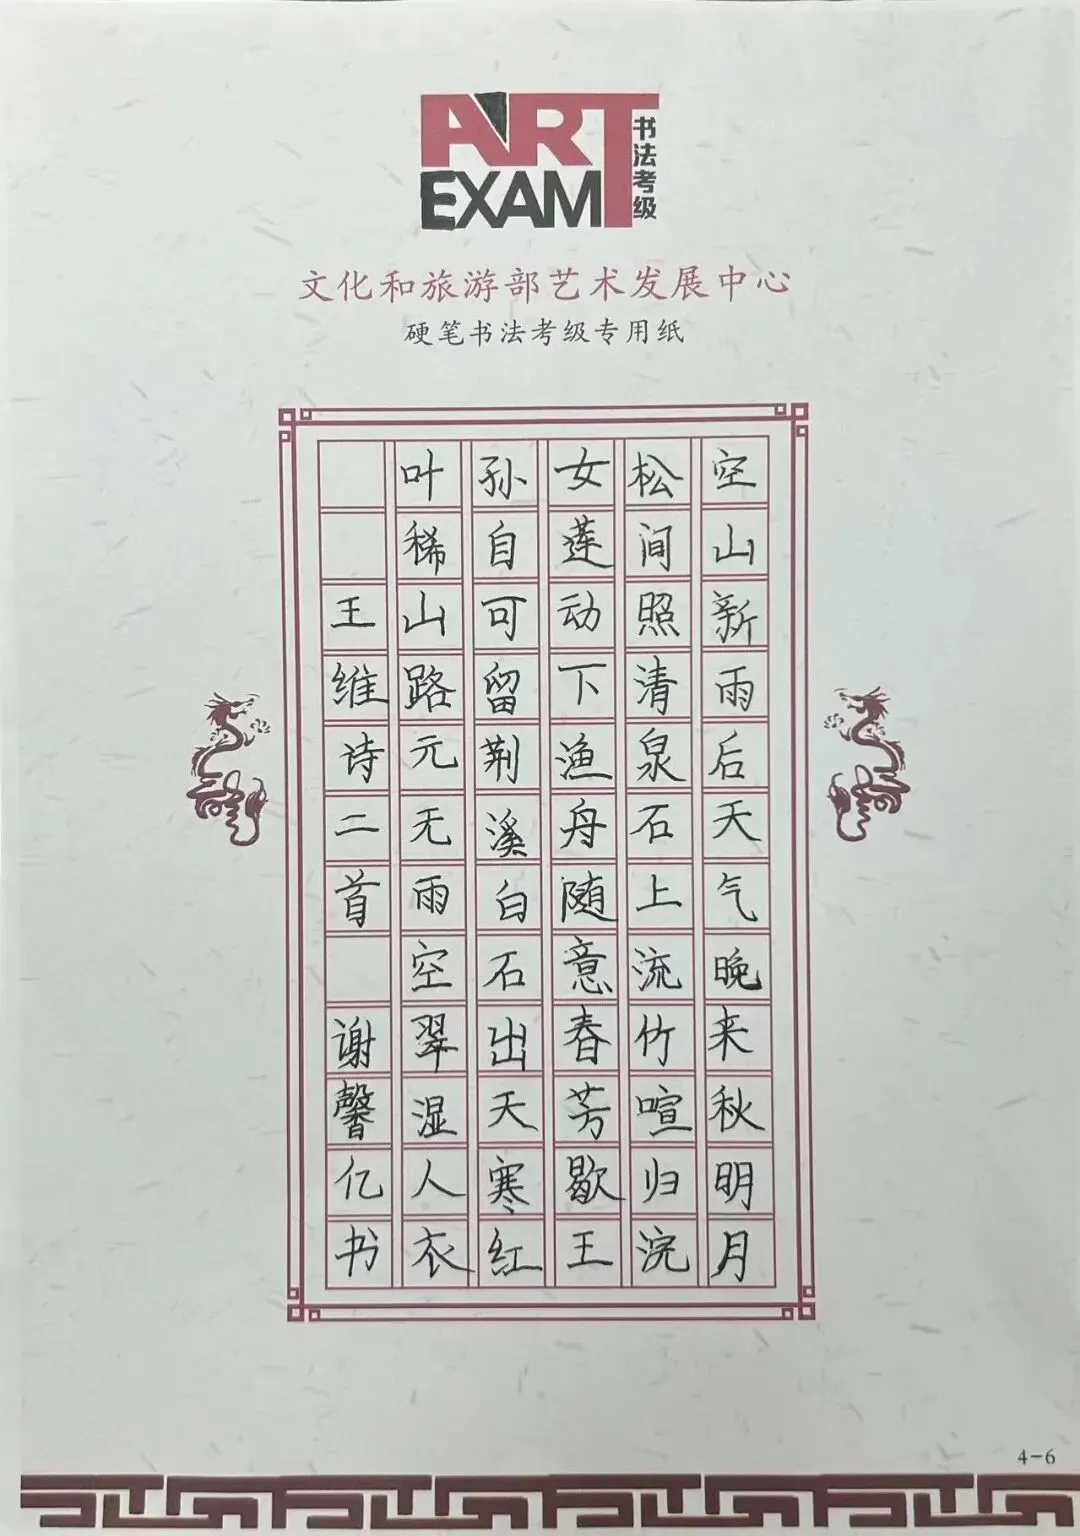 ART
EXAM
书法考级
文化和旅游部艺术发展中心
硬笔书法考级专用纸
空山新雨后天气晚来秋明月
松间照清泉石上流竹喧归浣
女莲动下渔舟随意春芳歇王
孙自可留荆溪白石出天寒红
叶稀山路元无雨空翠湿人衣
王维诗二首 谢馨亿书
4-6